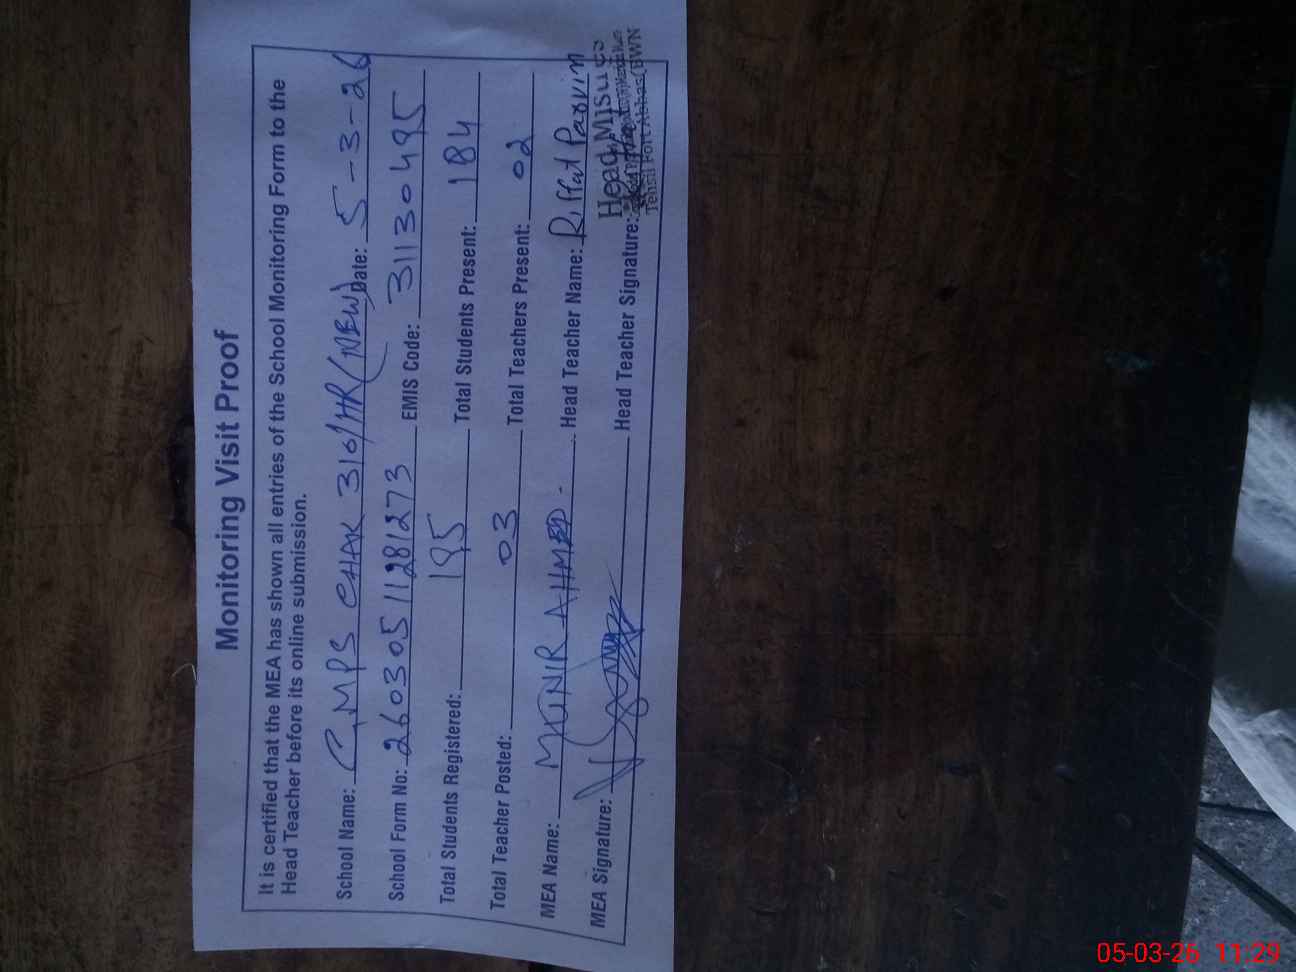 Monitoring Visit Proof
It is certified that the MEA has shown all entries of the School Monitoring Form to the
Head Teacher before its online submission.
School Name: GMPS CHAK 310/HR(NEW) Date: 5-3-26
School Form No: 26030511281273 EMIS Code: 31130495
Total Students Registered: 195 Total Students Present: 184
Total Teacher Posted: 03 Total Teachers Present: 02
MEA Name: MUNIR AHMED - Head Teacher Name: Riffat Parvin
MEA Signature: Head Teacher Signature:
Head Mistress
Tehsil Fort Abbas (BWN
05-03-26 11:29